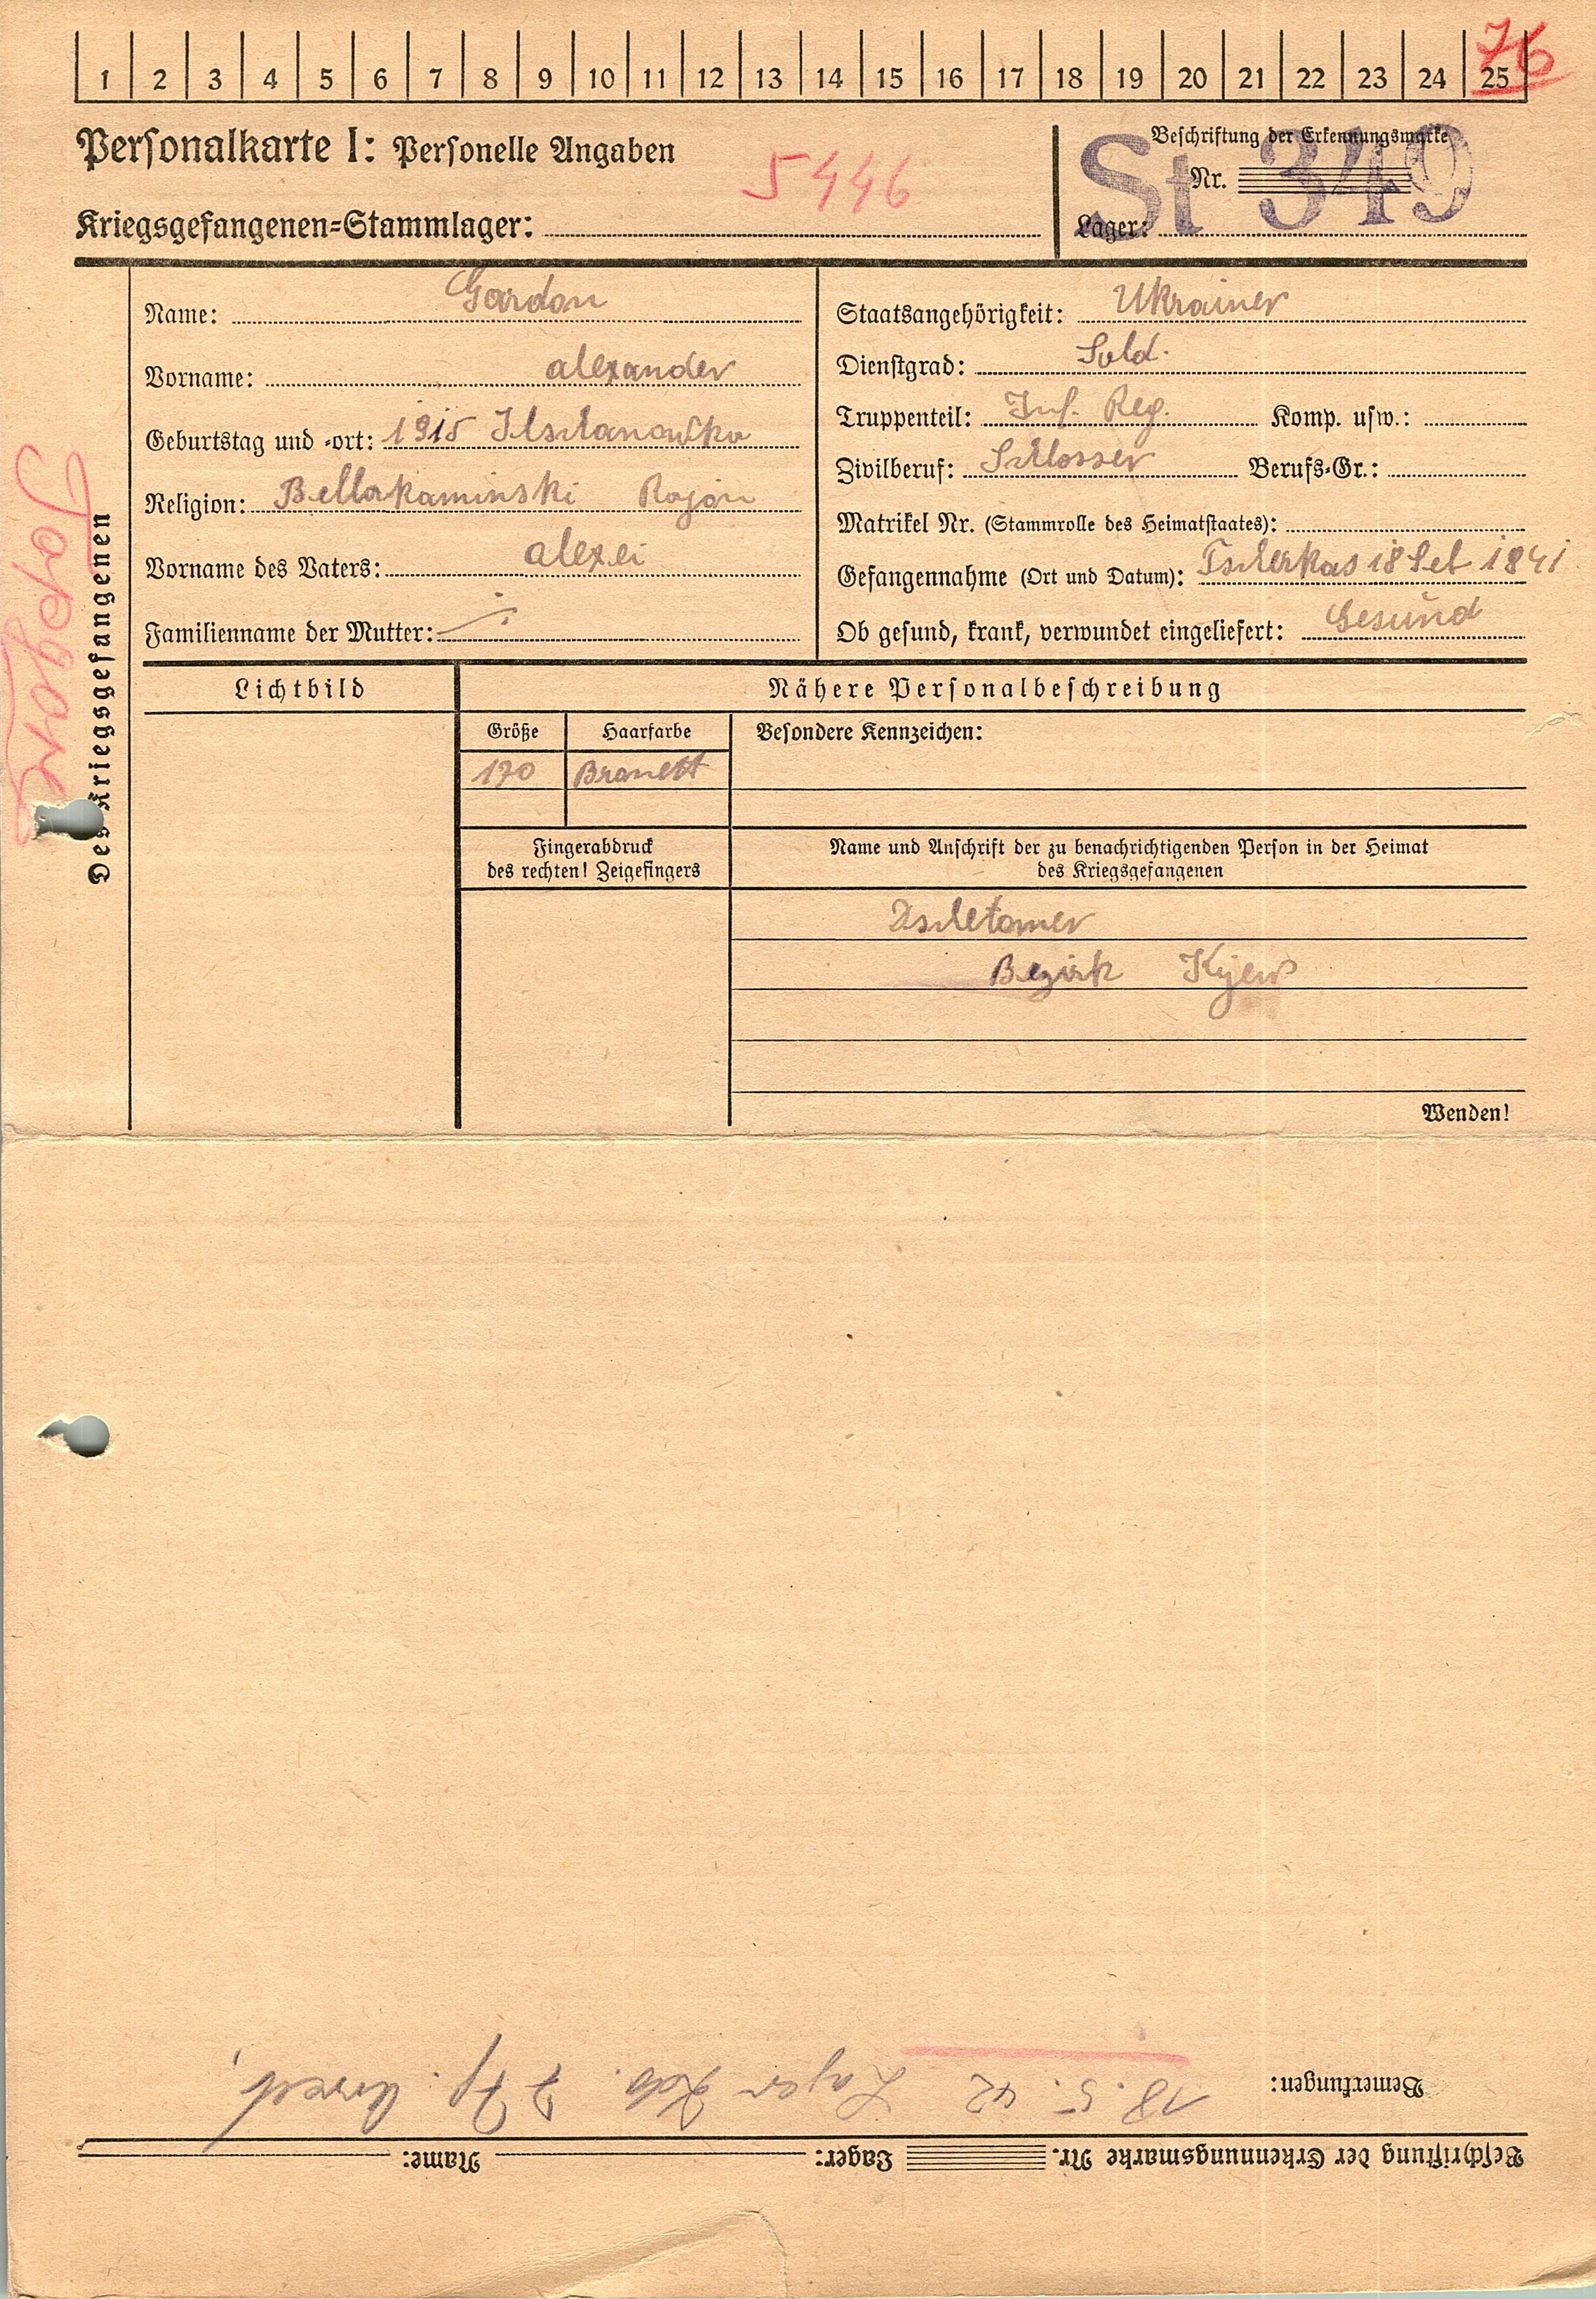 76
1 2 3 4 5 6 7 8 9 10 11 12 13 14 15 16 17 18 19 20 21 22 23 24 25
Personalkarte I: Personelle Angaben
5446
Kriegsgefangenen=Stammlager:
Beschriftung der Erkennungsmarke
Nr.
St 349
Lager:
Des Kriegsgefangenen
Name: Gordon
Vorname: alexander
Geburtstag und =ort: 1915
Religion: Bellokaminski Rajon
Vorname des Vaters: alexei
Familienname der Mutter:
Staatsangehörigkeit: Ukrainer
Dienstgrad: Sold.
Truppenteil: Inf. Reg. Komp. usw.:
Zivilberuf: Schlosser Berufs=Gr.:
Matrikel Nr. (Stammrolle des Heimatstaates):
Gefangennahme (Ort und Datum): Tscherkas 18 Set 1841
Ob gesund, krank, verwundet eingeliefert: Gesund
Lichtbild
Nähere Personalbeschreibung
Größe Haarfarbe Besondere Kennzeichen:
170 Bronett
Fingerabdruck
des rechten! Zeigefingers
Name und Anschrift der zu benachrichtigenden Person in der Heimat
des Kriegsgefangenen
Bezirk Kijew
Wenden!
Beschriftung der Erkennungsmarke Nr. Lager: Name:
Bemerkungen: 18. 5. 42 Lager